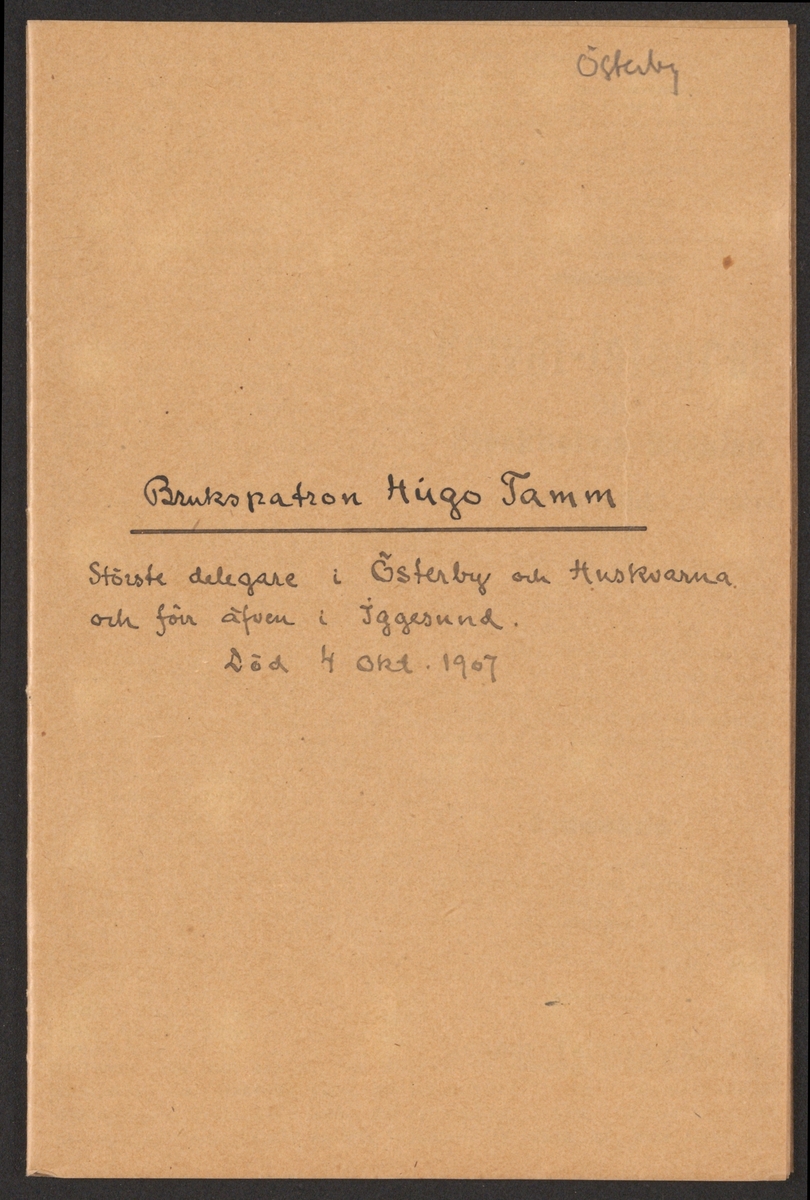 Österby
Brukspatron Hugo Tamm
Störste delegare i Österby och Huskvarna
och förr äfven i Iggesund.
Död 4 Okt. 1907